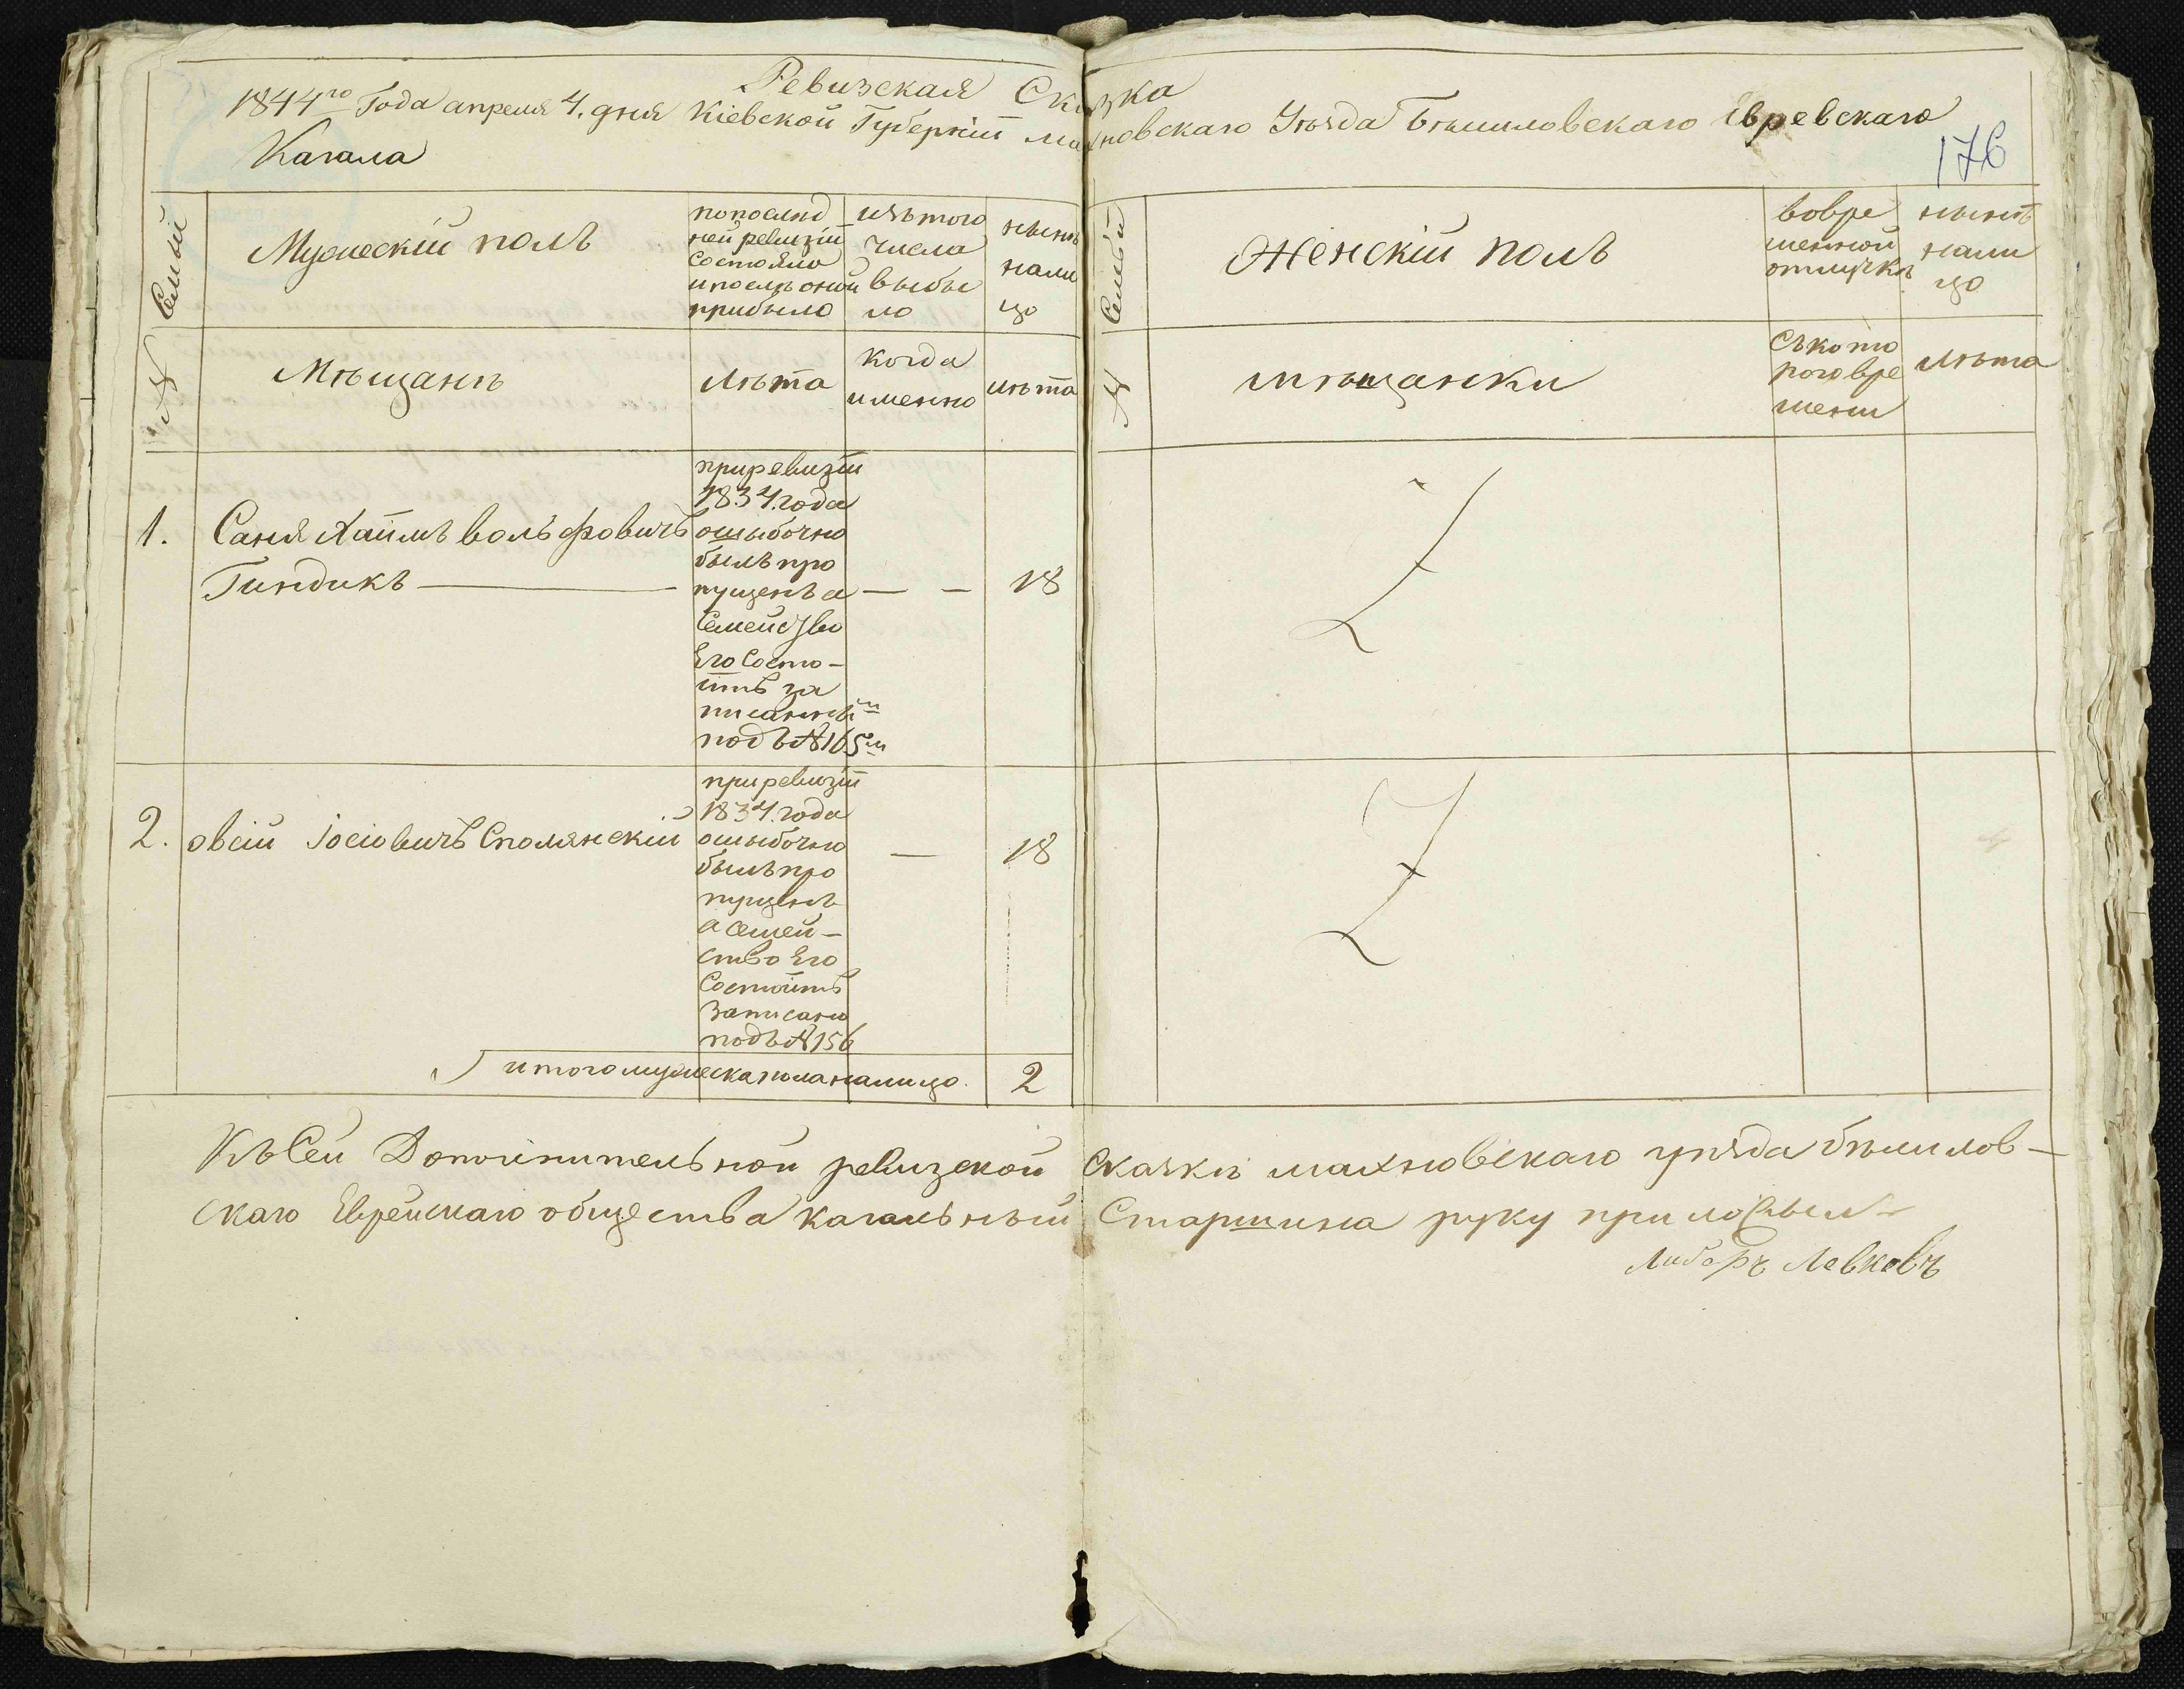 Ревизская Сказка
1844го Года апреля 4. дня Кіевской Губерніи махновскаго Уѣзда Бѣлиловскаго Еврейскаго
Кагала
176
№ Семьи
Мужескій полъ
попослѣд
ней ревизіи
состояло
и послѣ оной
прибыло
изътого
числа
выбы
ло
нынѣ
нали
цо
Мѣщанѣ
Лѣта
когда
именно
лѣта
№ Семьи
Женскій полъ
вовре
менной
отлучкѣ
нынѣ
нали
цо
мѣщанки
Съкото
раго вре
мени
лѣта
1.
Саня Хаимъ вольфовичъ
Гиндикъ — — — 18
приревизіи
1834. года
ошыбочно
былъ про
пущенъ а
Семейство
Его Состо-
итъ за
писаннымъ
подъ № 165м
2. овсій Іосіовичъ Сполянскій — 18
приревизіи
1834. года
ошыбочно
былъ про
пущенъ
а Семей-
ство Его
Состоитъ
Записано
подъ № 156
итого мужеска пола налицо. 2
Къ Сей Дополнительной ревизской Сказки махновскаго уѣзда бѣлилов-
скаго Еврейскаго общества кагальный Старшина руку приложылъ
Либеръ Левковъ